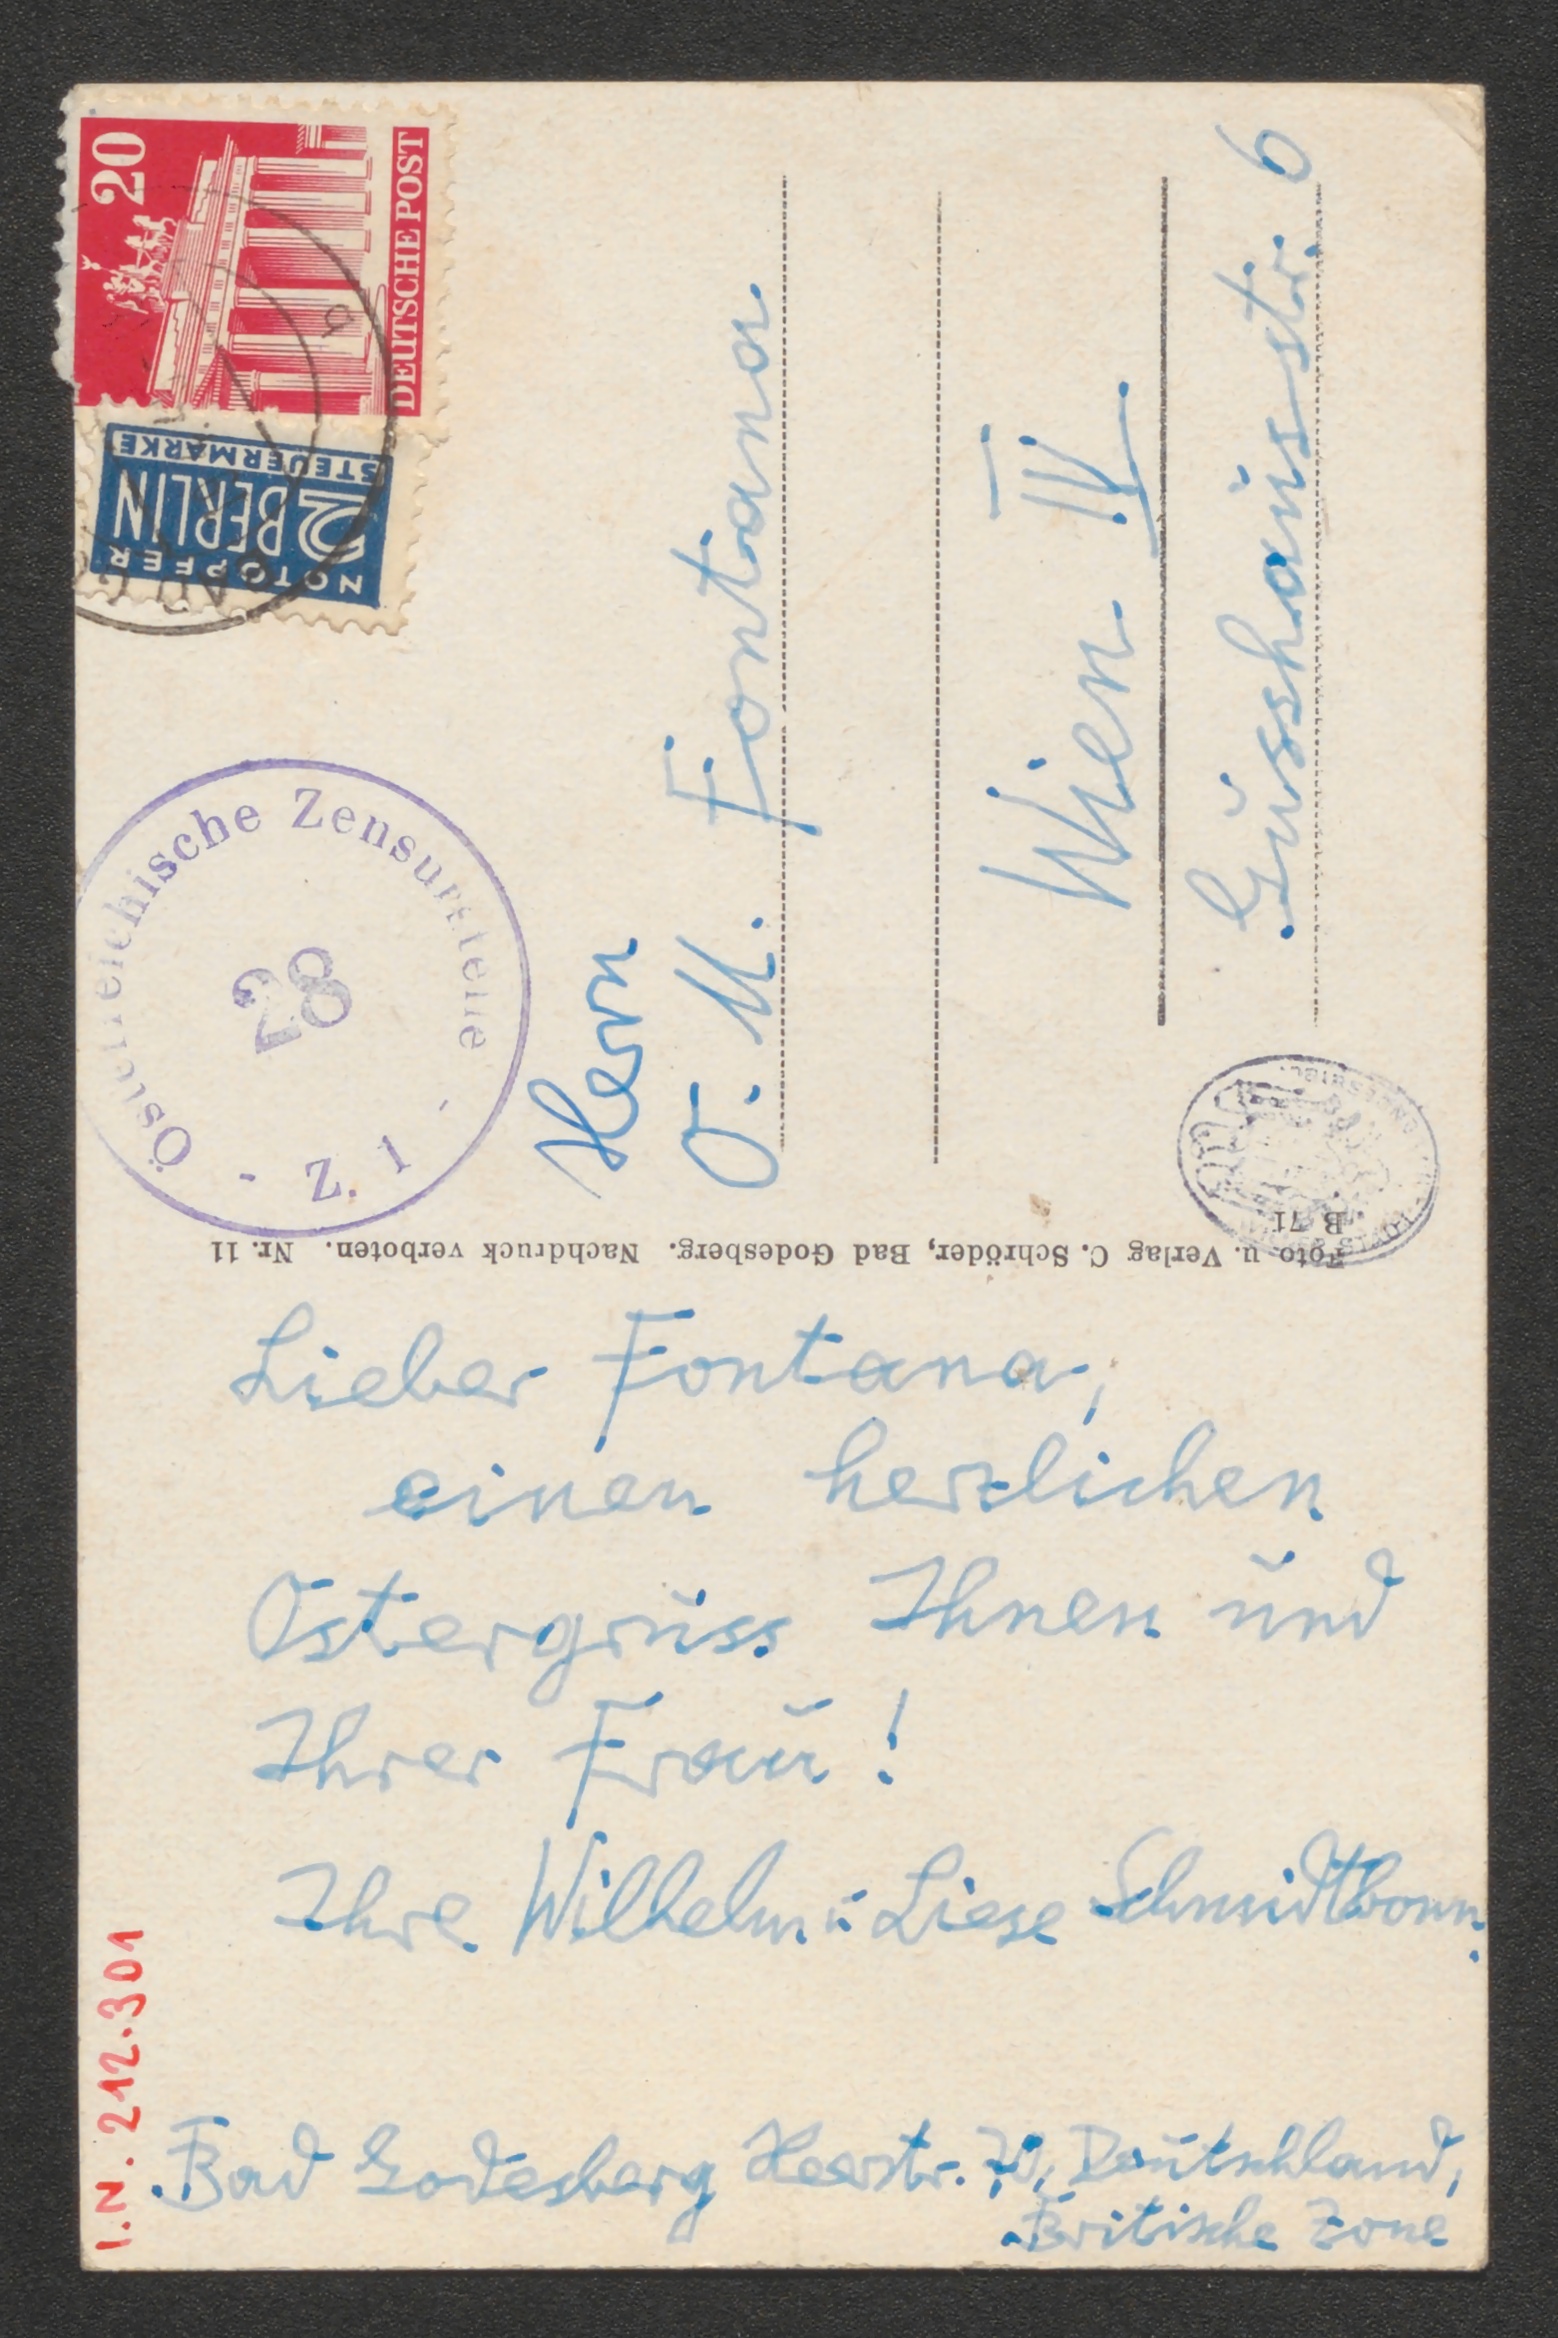 20
DEUTSCHE POST
NOTOPFER
2 BERLIN
STEUERMARKE
Österreichische Zensurstelle
28
- Z. 1 -
Herrn
O. M. Fontana
Wien IV
Gusshausstr. 6
B 71
Foto u. Verlag C. Schröder, Bad Godesberg. Nachdruck verboten. Nr. 11
Lieber Fontana,
einen herzlichen
Ostergruss Ihnen und
Ihrer Frau!
Ihre Wilhelm u Liese Schmidtbonn.
Bad Godesberg Heerstr. Deutschland,
Britische Zone
I.N. 212.301